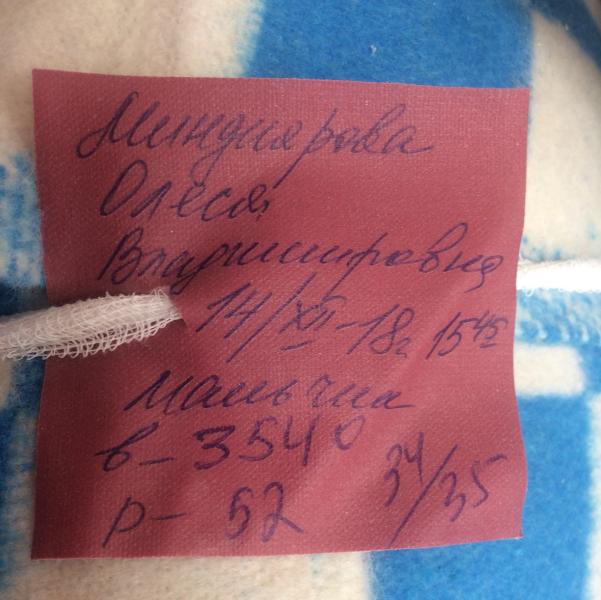 Миндиярова
Олеся
Владимировна
14/XII-18г 15 45
мальчик
в- 3540
р- 52 34/35